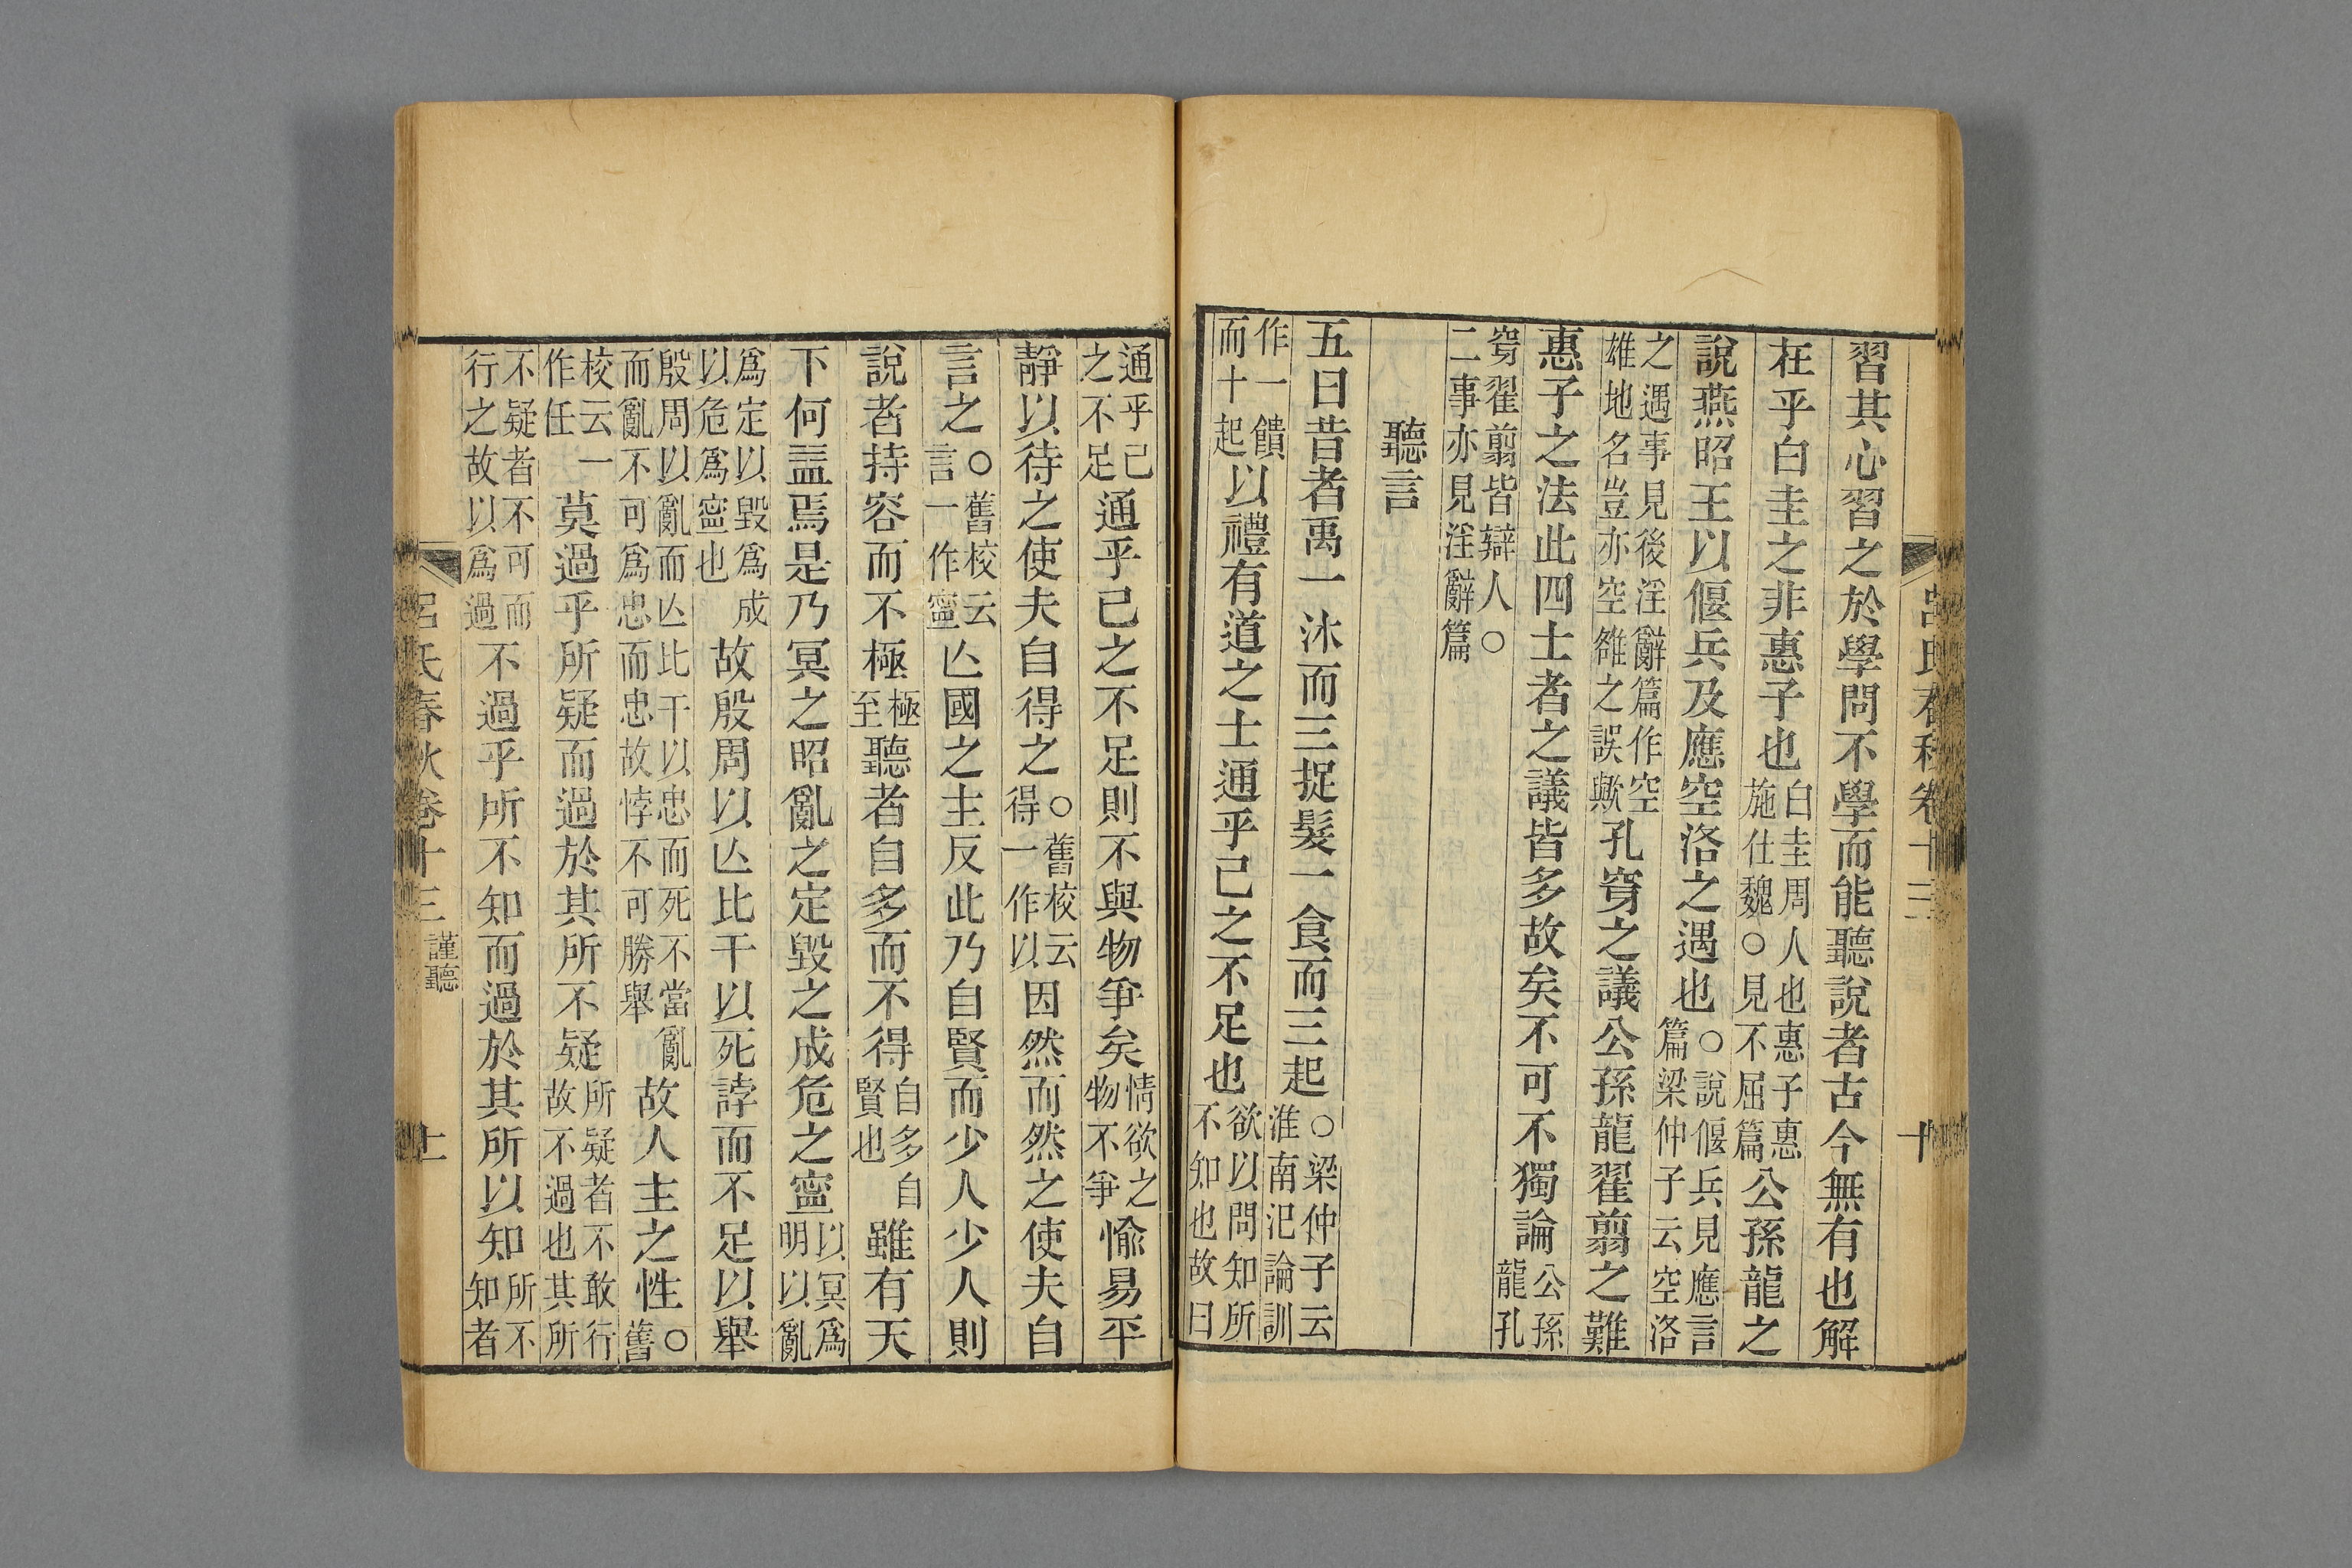 呂氏春秋卷十三
十
習其心習之於學問不學而能聽說者古今無有也解
在乎白圭之非惠子也白圭周人也惠子惠施仕魏○見不屈篇公孫龍之
說燕昭王以偃兵及應空洛之遇也○說偃兵見應言篇梁仲子云空洛
之遇事見後淫辭篇作空雄地名豈亦空雒之誤歟孔穿之議公孫龍翟翦之難
惠子之法此四士者之議皆多故矣不可不獨論公孫龍孔
穿翟翦皆辯人○二事亦見淫辭篇
聽言
五曰昔者禹一沐而三捉髮一食而三起○梁仲子云淮南汜論訓
作一饋而十起以禮有道之士通乎己之不足也欲以問知所不知也故曰
通乎己之不足通乎己之不足則不與物爭矣情欲之物不爭愉易平
靜以待之使夫自得之○舊校云得一作以因然而然之使夫自
言之○舊校云言一作寍亾國之主反此乃自賢而少人少人則
說者持容而不極極至聽者自多而不得自多自賢也雖有天
下何益焉是乃冥之昭亂之定毀之成危之寍以冥爲明以亂
爲定以毀爲成以危爲寍也故殷周以亾比干以死誖而不足以舉
殷周以亂而亾比干以忠而死不當亂而亂不可爲忠而忠故悖不可勝舉故人主之性○舊
校云一作任莫過乎所疑而過於其所不疑所疑者不敢行故不過也其所
不疑者不可而行之故以爲過不過乎所不知而過於其所以知所不知者
呂氏春秋卷十三
謹聽
十一